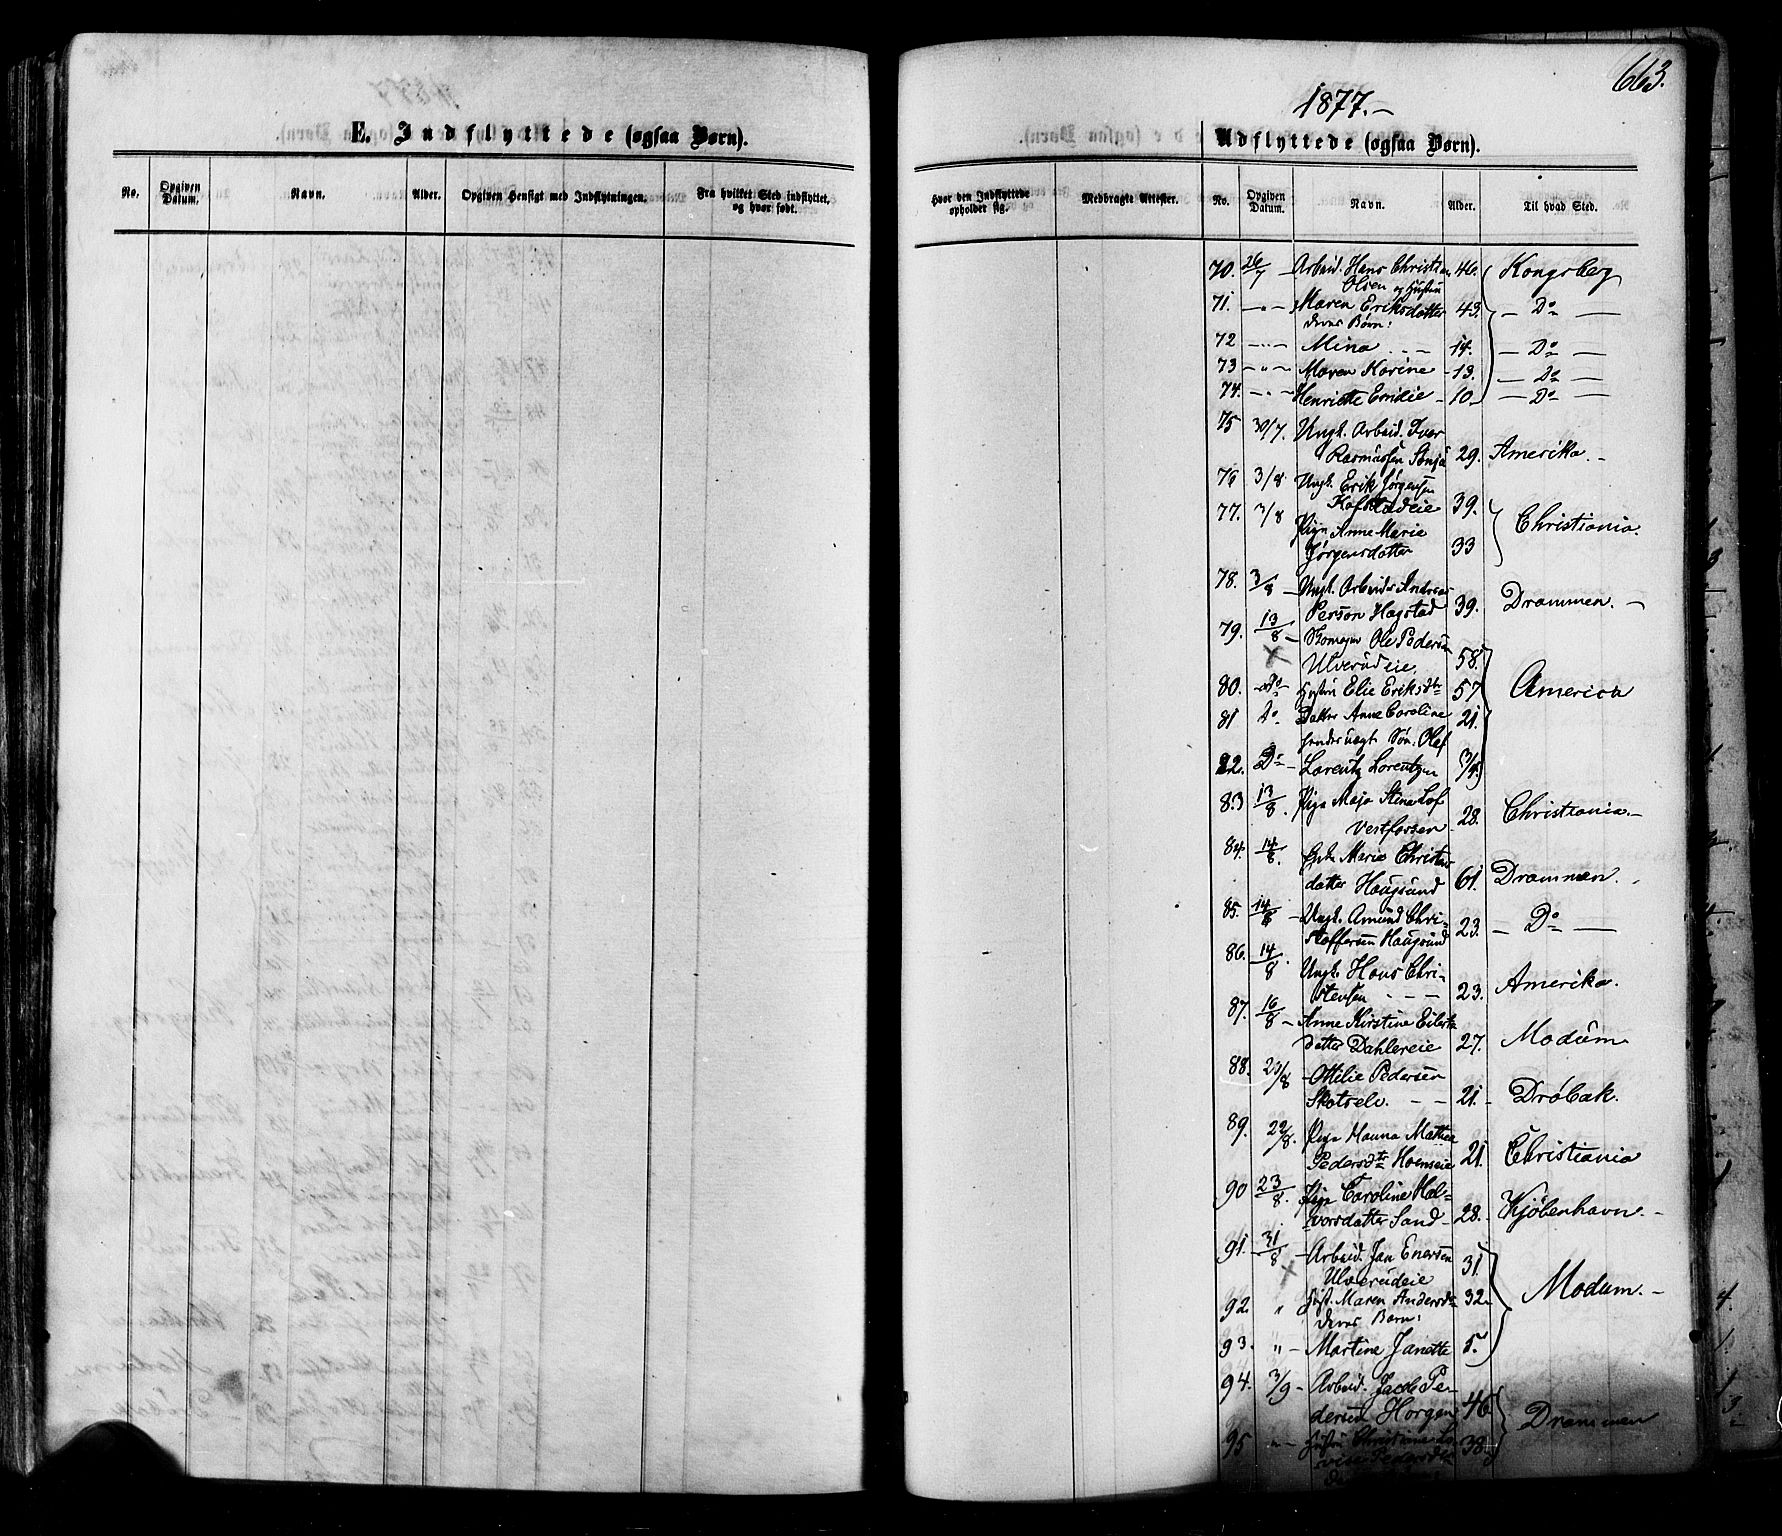 663.
1877.-
E. Indflyttede (ogsaa Børn).
No. Opgiven Datum. Navn. Alder. Opgiven Hensigt med Indflytningen. Fra hvilket Sted indflyttet, og hvor født.
Udflyttede (ogsaa Børn).
Hvor den Indflyttede opholder sig. Medbragte Attester. No. Opgiven Datum. Navn. Alder. Til hvad Sted.
70. 26/7 Arbeid. Hans Christian 46. Kongsberg
Olsen og Hustru
71. - " - Maren Eriksdatter 43. - Do -
deres Børn:
72 - " - Mina - - 14. - Do -
73 - " - Maren Karine - 13. - Do -
74. - " - Henriette Emilie - 10. - Do -
75 30/7. Ungk. Arbeid. Ivar
Rasmussen 29. Amerika. -
76 3/8. Ungk. Erik Jørgensen
Kofstadeie 39.
77. 3/8 Pige Anne Marie Christiania.
Jørgensdatter 33
78. 3/8 - Ungk. Arbeids. Andreas
Person Hagstad 39. Drammen. -
79. 13/8 - Ole Pedersen
Ulverudeie 58.
80. Do Hustru Elie Eriksdtr 57 America
81 Do Datter Anne Caroline 21.
hendes uægt. Søn. Olaf
82. Do - Lorentz Lorentzen 3/4.
83 13/8. Pige Maja Stina Lof
Vestfossen 28. Christiania. -
84. 14/8. Enke Marie Christens
datter Haugsund 61. Drammen.
85. 14/8 - Ungk. Amund Chri-
stoffersen Haugsund 23. - Do -
86. 14/8. Ungk. Hans Chri-
stensen - - - 23. Amerika.
87. 16/8 - Anne Kirstine Eilerts
datter Dahlereie 27. Modum
88. 23/8 - Ottilie Pedersen
Skotselv. - - 21. - Drøbak.
89. 22/8. Pige Hanna Mathea
Pedersdtr Hoenseie 21. Christiania
90 23/8. Pige Caroline Hal-
vorsdatter Sand - 28. Kjøbenhavn. -
91. 31/8 - Arbeid. Jan Enersen 31.
Ulverudeie
92. " Hust. Maren Andersdtr 32. Modum. -
deres Barn:
93. " - Martine Janette 5.
94. 3/9 - Arbeid. Jacob Pe-
dersen Horgen 46. Drammen
95 " - Hustru Christine Lo-
vise Pedersdtr 38.